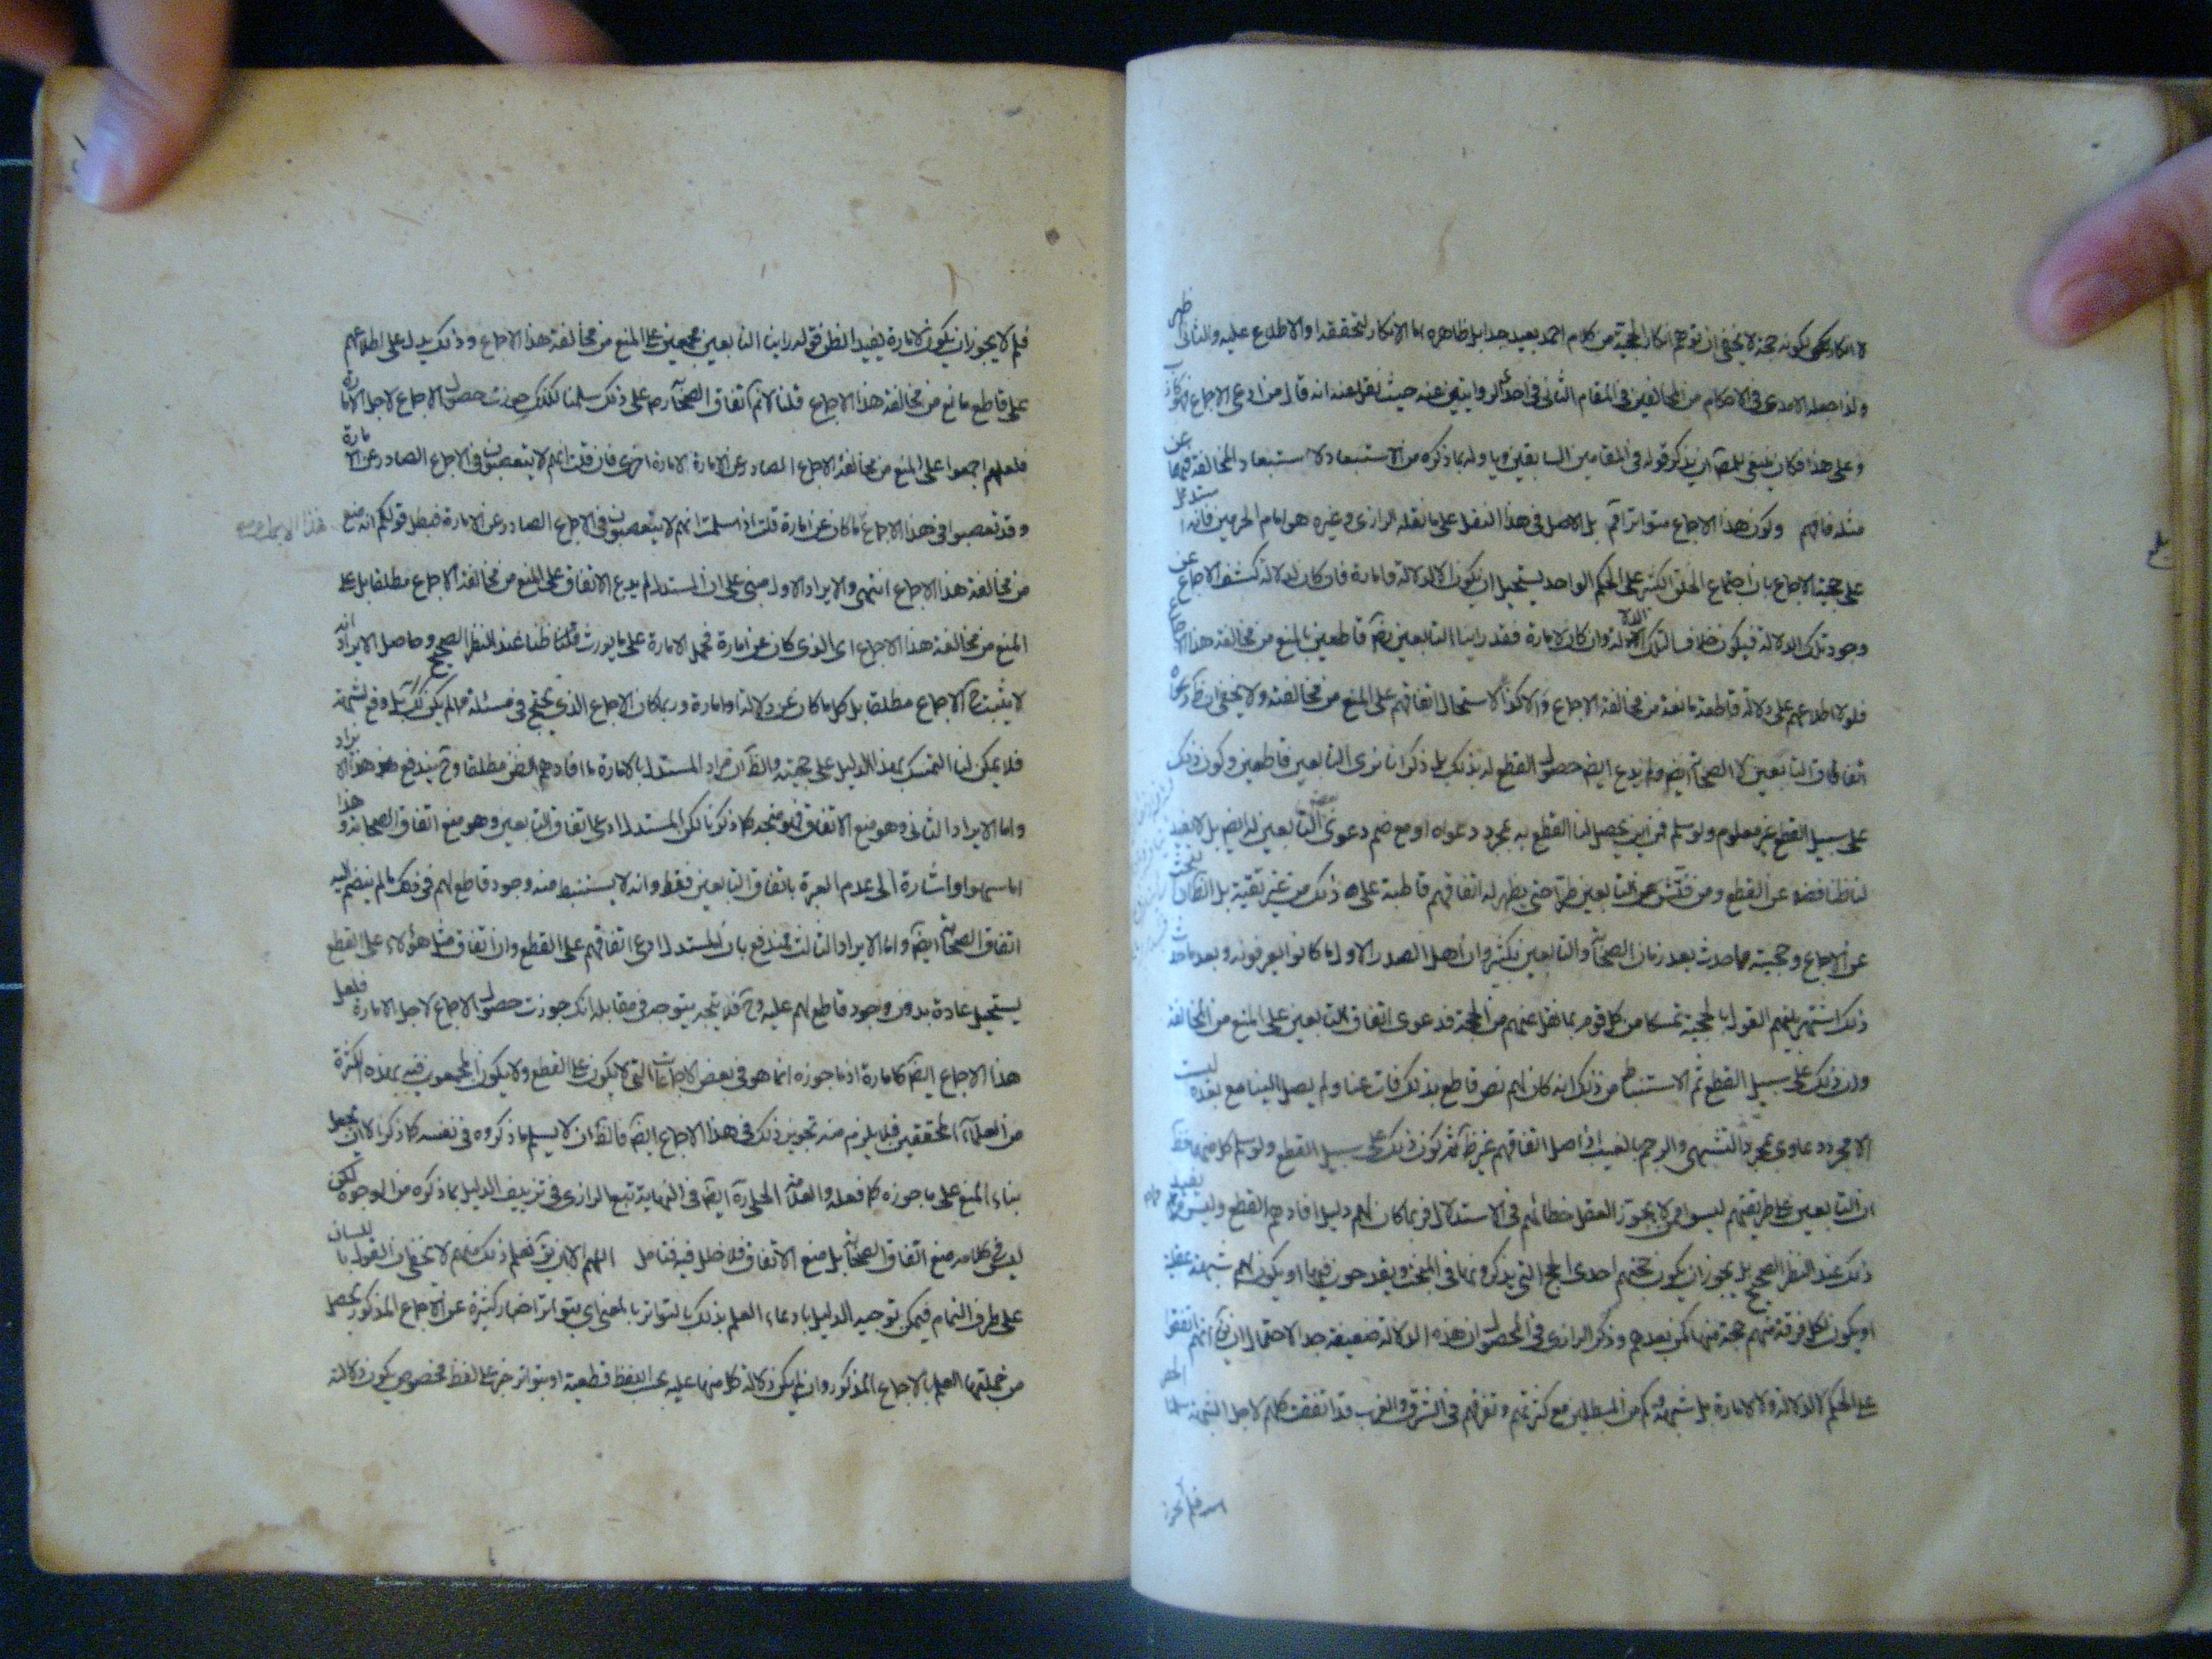 لا انكار لكونه حجة لا يخفى ان توهم انكار الحجية من كلام احمد بعيد جدا بل ظاهره اما الانكار لتحققه او الاطلاع عليه والثانى اظهر
ولذا جعله الامدى فى الاحكام من المخالفين فى المقام الثانى فى احدى الروايتين عنه حيث نقل عنه انه قال من ادعى الاجماع فهو كاذب
وعلى هذا فكان ينبغى للمص ان يذكر قوله فى المقامين السابقين وياوله بما ذكره من الاستبعاد لا استبعاد المخالفة فيهما عن
مثله فافهم وكون هذا الاجماع متواترا آه بل الاصل فى هذا النقل على ما نقله الرازى وغيره هو امام الحرمين فانه استدل
على حجية الاجماع بان اجتماع الخلق الكثير على الحكم الواحد يستحيل ان يكون الا لدلالة او امارة فان كان لدلالة كشف الاجماع عن
وجود تلك الدلالة فيكون خلاف تلك الدلالة وان كان لامارة فقد راينا التابعين قاطعين بالمنع من مخالفة هذا الاجماع
فلولا اطلاعهم على دلالة قاطعة مانعة من مخالفة الاجماع والا لاستحال اتفاقهم على المنع من مخالفته ولا يخفى ان
اتفاق التابعين لا الصحابة ايضا ولم يدع ايضا حصول القطع له بذلك بل ذكر انا نرى التابعين قاطعين وكون ذلك
على سبيل القطع غير معلوم ولو سلم فمن اين يحصل لنا القطع به بمجرد دعواه او مع ضم دعوى التابعين له ايضا بل لا يفيد
لنا ظنا فضلا عن القطع ومن فتش عن التابعين طرا حتى يظهر له اتفاقهم قاطبة على ذلك من غير تقية بل الظ ان البحث
عن الاجماع وحجيته مما حدث بعد زمان الصحابة والتابعين بكثير وان اهل الصدر الاول ما كانوا يعرفونه وبعد ما حدث
ذلك اشتهر بينهم القول بالحجية تمسكا من كل قوم بما نقل عنهم من الحجة فدعوى اتفاق التابعين على المنع من المخالفة
وان ذلك على سبيل القطع ثم الاستنباط من ذلك انه كان لهم نص قاطع بذلك فات عنا ولم يصل الينا مع بعده ليست
الا مجرد دعاوى بمجرد التشهى والرجم بالغيب اذ اصل اتفاقهم غير ظ ثم كون ذلك على سبيل القطع ولو سلم كل منهما فظ
ان التابعين على طريقتهم ليسوا ممن لا يجوز العقل خطائهم فى الاستدلال فربما كان لهم دليل افادهم القطع وليس يفيد
ذلك عند النظر الصحيح بل يجوز ان يكون حجتهم احدى الحجج التى يذكرونها فى المبحث ويقدحون فيها او يكون لهم شبهة عقلية
او يكون لكل فرقة منهم حجة منها لمن بعدهم وذكر الرازى فى المحصول ان هذه الدلالة ضعيفة جدا لاحتمال ان يق انهم اتفقوا
على الحكم لا لدلالة ولا لامارة بل شبهة وكم من المبطلين مع كثرتهم وتفرقهم فى الشرق والغرب قد اتفقت كلمتهم لاجل الشبهة سلمنا
فلم لا يجوز ان يكون لامارة يفيد الظن قوله راينا التابعين مجمعين على المنع من مخالفة هذا الاجماع وذلك يدل على اطلاعهم
على قاطع مانع من مخالفة هذا الاجماع قلنا لا نم اتفاق الصحابة رض على ذلك سلمنا لكنك جوزت حصول الاجماع لاجل الامارة
فلعلهم اجمعوا على المنع من مخالفة الاجماع الصادر عن الامارة لامارة اخرى فان قلت انهم لا يتعصبون فى الاجماع الصادر عن الامارة
وقد تعصبوا فى هذا الاجماع ما كان عن امارة قلت اذا سلمت انهم لا يتعصبون فى الاجماع الصادر عن الامارة فبطل قولكم انه منع
من مخالفة هذا الاجماع انتهى والايراد الاول مبنى على ان المستدل لم يدع الاتفاق على المنع من مخالفة الاجماع مطلقا بل على
المنع من مخالفة هذا الاجماع اى الذى كان عن امارة فحمل الامارة على ما يورث ظنا عند النظر الصحيح وحاصل الايراد انه
لا يثبت ح الاجماع مطلقا بل كل ما كان عن دلالة او امارة وربما كان الاجماع الذى يحتج فى مسئلة مما لم يكن كك بل وقع لشبهة
فلا يمكن لنا التمسك بهذا الدليل على حجيته والظ ان مراد المستدل بالامارة ما افادهم الظن مطلقا وح يندفع هذا الايراد
واما الايراد الثانى وهو منع الاتفاق فهو متجه كما ذكرنا لكن المستدل ادعى اتفاق التابعين وهو منع اتفاق الصحابة وهذا
اما سهو او اشارة الى عدم العبرة باتفاق التابعين فقط وانه لا يستنبط منه وجود قاطع لهم فى ذلك ما لم ينضم اليه
اتفاق الصحابة ايضا واما الايراد الثالث فيندفع بان المستدل ادعى اتفاقهم على القطع وان اتفاق مثل هؤلاء على القطع
يستحيل عادة بدون وجود قاطع لهم عليه وح فلا يتجه فى مقابله انك جوزت حصول الاجماع لاجل الامارة فلعل
هذا الاجماع ايضا كان لامارة اذ ما جوزه انما هو فى بعض الاجماعات التى لا يكون على القطع ولا يكون المجمعون فيه بهذه الكثرة
من العلماء المحققين فلا يلزم منه تجويز ذلك فى هذا الاجماع ايضا فالظ ان لا يسلم ما ذكروه فى نفسه كما ذكرنا لا ان يجعل
بناء المنع على ما جوزه كما فعله والعلامة الحلى ره ايضا فى النهاية تبع الرازى فى تزييف الدليل بما ذكره من الوجوه لكن
ليس فى كلامه منع اتفاق الصحابة بل منع الاتفاق فلا خلل فيه فتامل اللهم الا ان يق نعلم ذلك منهم لا يخفى ان القول
على طرف التمام فيمكن توجيه الدليل بادعاء العلم بذلك بالتواتر بالمعنى اى بتواتر اخبار كثيرة عن الاجماع المذكور يحصل
من جملتها العلم بالاجماع المذكور وان لم يكن دلالة كل منها عليه بحسب اللفظ قطعية او بتواتر خبر على لفظ مخصوص يكون دلالته